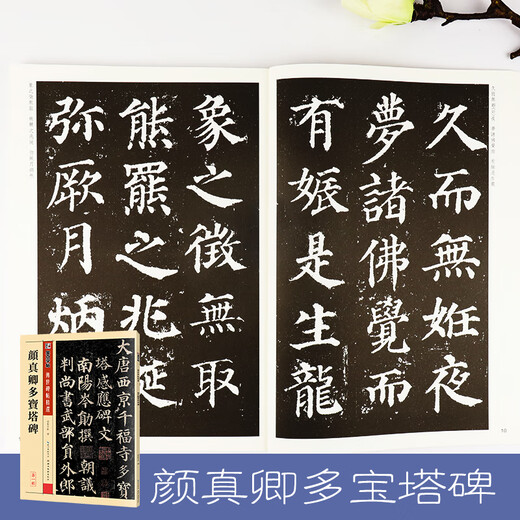 久而無姙夜
夢諸佛覺而
有娠是生龍
象之徵無取
熊羆之兆誕
弥厥月炳
顏真卿多寶塔碑
大唐西京千福寺多寶
塔感應碑文
南陽岑勛撰 朝議
判尚書武部員外郎
颜真卿多宝塔碑